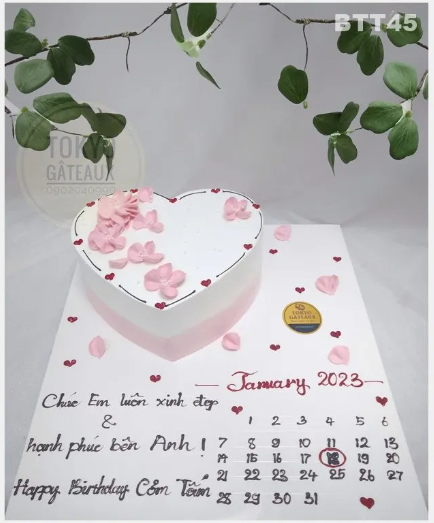 BTT45
TOKYO
GÂTEAUX
TOKYO
GÂTEAUX
January 2023
Chúc Em luôn xinh đẹp
&
hạnh phúc bên Anh !
Happy Birthday Cốm
1 2 3 4 5 6
7 8 9 10 11 12 13
14 15 16 17 18 19 20
21 22 23 24 25 26 27
28 29 30 31